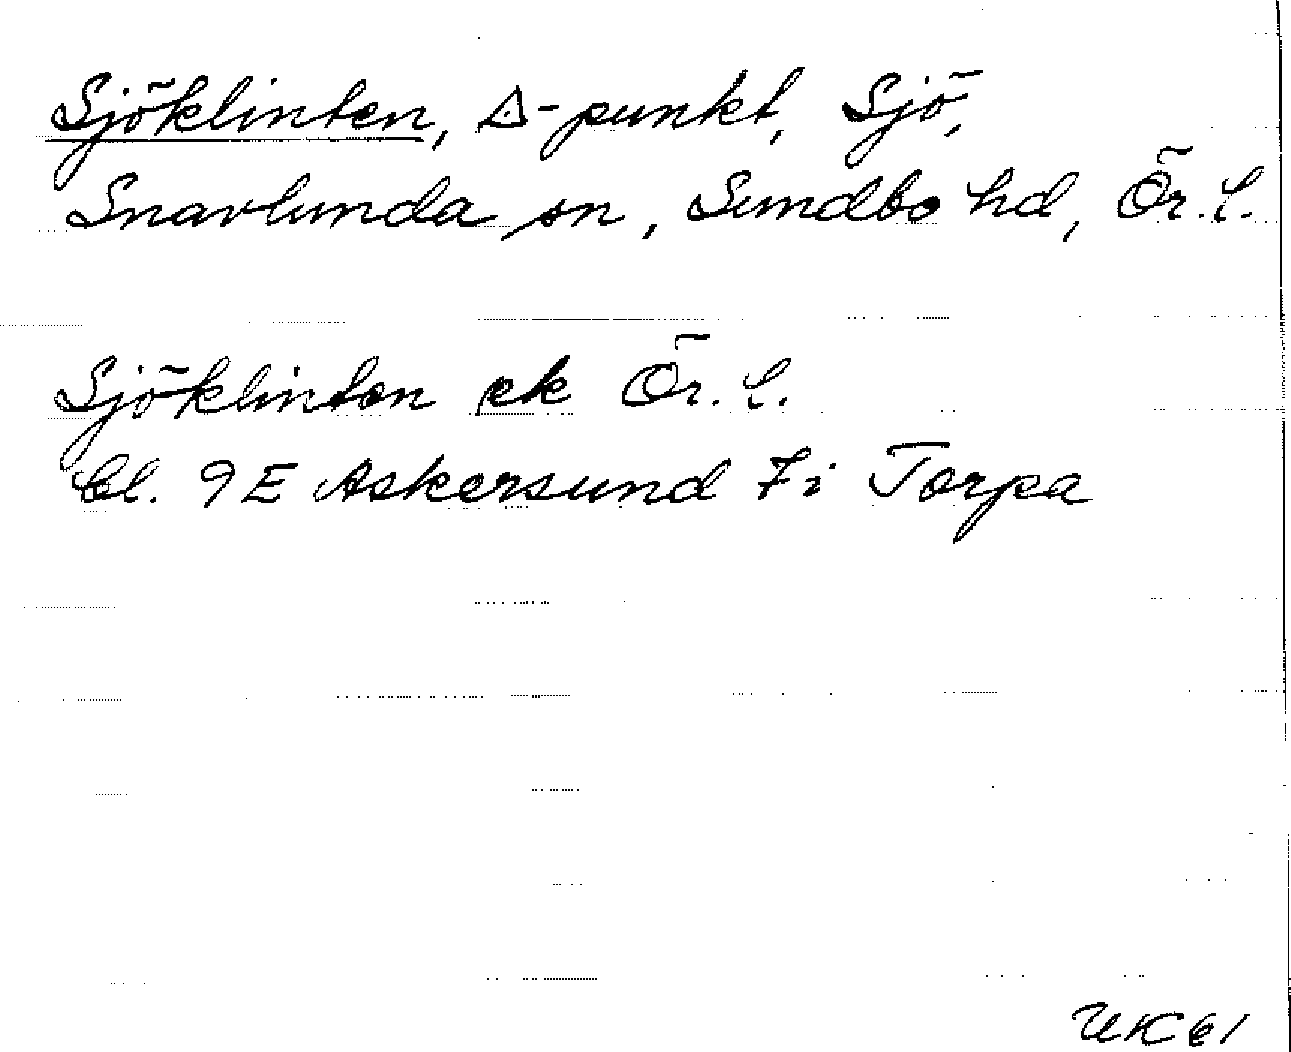 Sjöklinten, △-punkt, Sjö,
Snavlunda sn, Sundbo hd, Ör. l.
Sjöklinten ek Ör. l.
bl. 9E Askersund 7i Torpa
UK 61